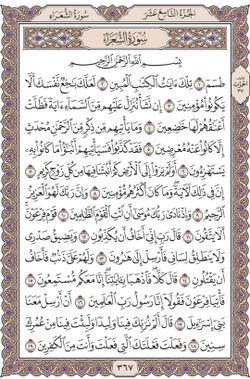 الجزء التاسع عشر سورة الشعراء
سورة الشعراء
بسم الله الرحمن الرحيم
طسم ١ تلك ءايت الكتب المبين ٢ لعلك بخع نفسك ألا
يكونوا مؤمنين ٣ إن نشأ ننزل عليهم من السماء ءاية فظلت
أعنقهم لها خضعين ٤ وما يأتيهم من ذكر من الرحمن محدث
إلا كانوا عنه معرضين ٥ فقد كذبوا فسيأتيهم أنبؤا ما كانوا به
يستهزءون ٦ أولم يروا إلى الأرض كم أنبتنا فيها من كل زوج كريم ٧
إن في ذلك لءاية وما كان أكثرهم مؤمنين ٨ وإن ربك لهو العزيز
الرحيم ٩ وإذ نادى ربك موسى أن ائت القوم الظلمين ١٠ قوم فرعون
ألا يتقون ١١ قال رب إني أخاف أن يكذبون ١٢ ويضيق صدري
ولا ينطلق لساني فأرسل إلى هرون ١٣ ولهم علي ذنب فأخاف
أن يقتلون ١٤ قال كلا فاذهبا بءايتنا إنا معكم مستمعون ١٥
فأتيا فرعون فقولا إنا رسول رب العلمين ١٦ أن أرسل معنا
بني إسرءيل ١٧ قال ألم نربك فينا وليدا ولبثت فينا من عمرك
سنين ١٨ وفعلت فعلتك التي فعلت وأنت من الكفرين ١٩
٣٦٧